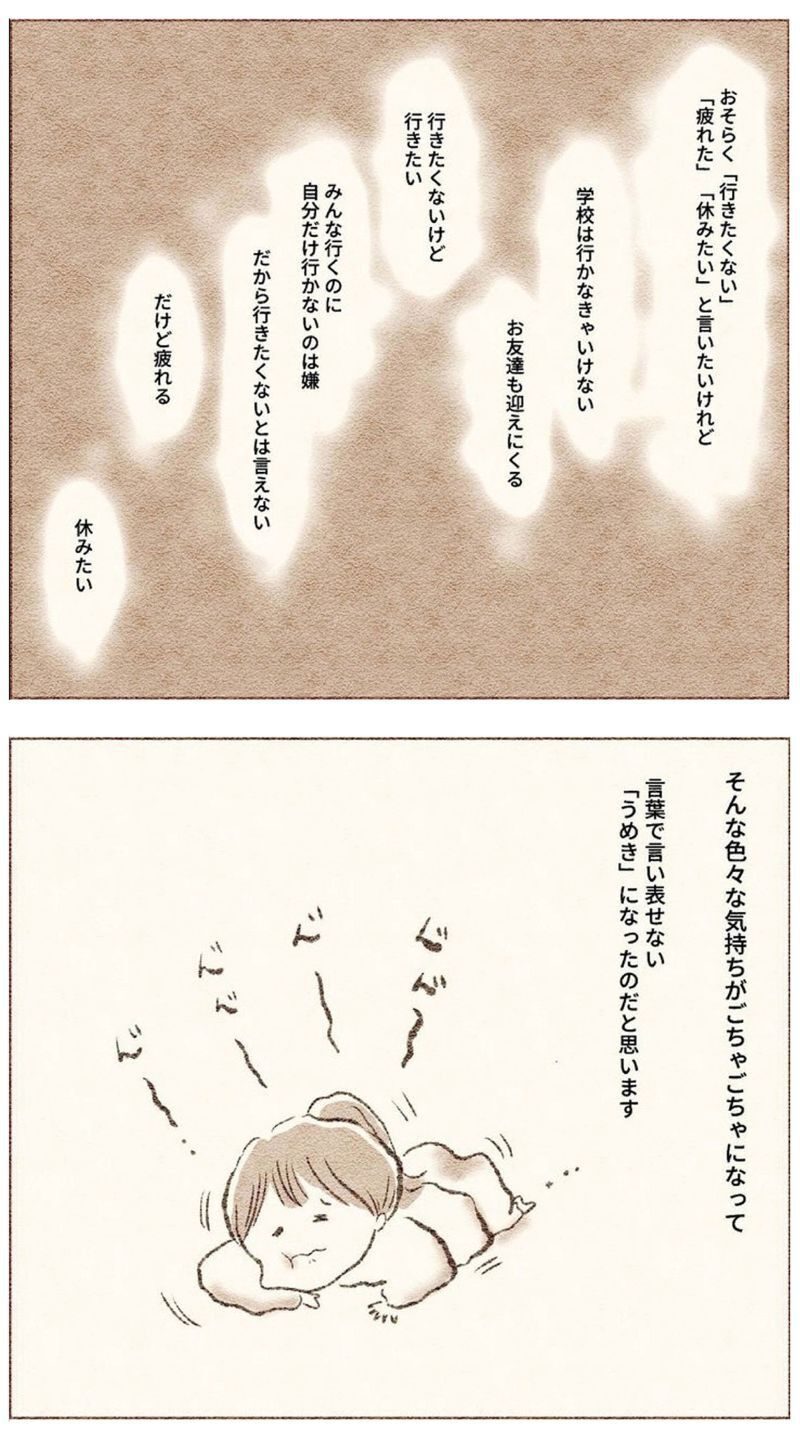 おそらく「行きたくない」
「疲れた」「休みたい」と言いたいけれど
学校は行かなきゃいけない
お友達も迎えにくる
行きたくないけど
行きたい
みんな行くのに
自分だけ行かないのは嫌
だから行きたくないとは言えない
だけど疲れる
休みたい
そんな色々な気持ちがごちゃごちゃになって
言葉で言い表せない
「うめき」になったのだと思います
ん゛ん゛〜
ん゛〜
ん゛ん゛〜
ん゛〜…